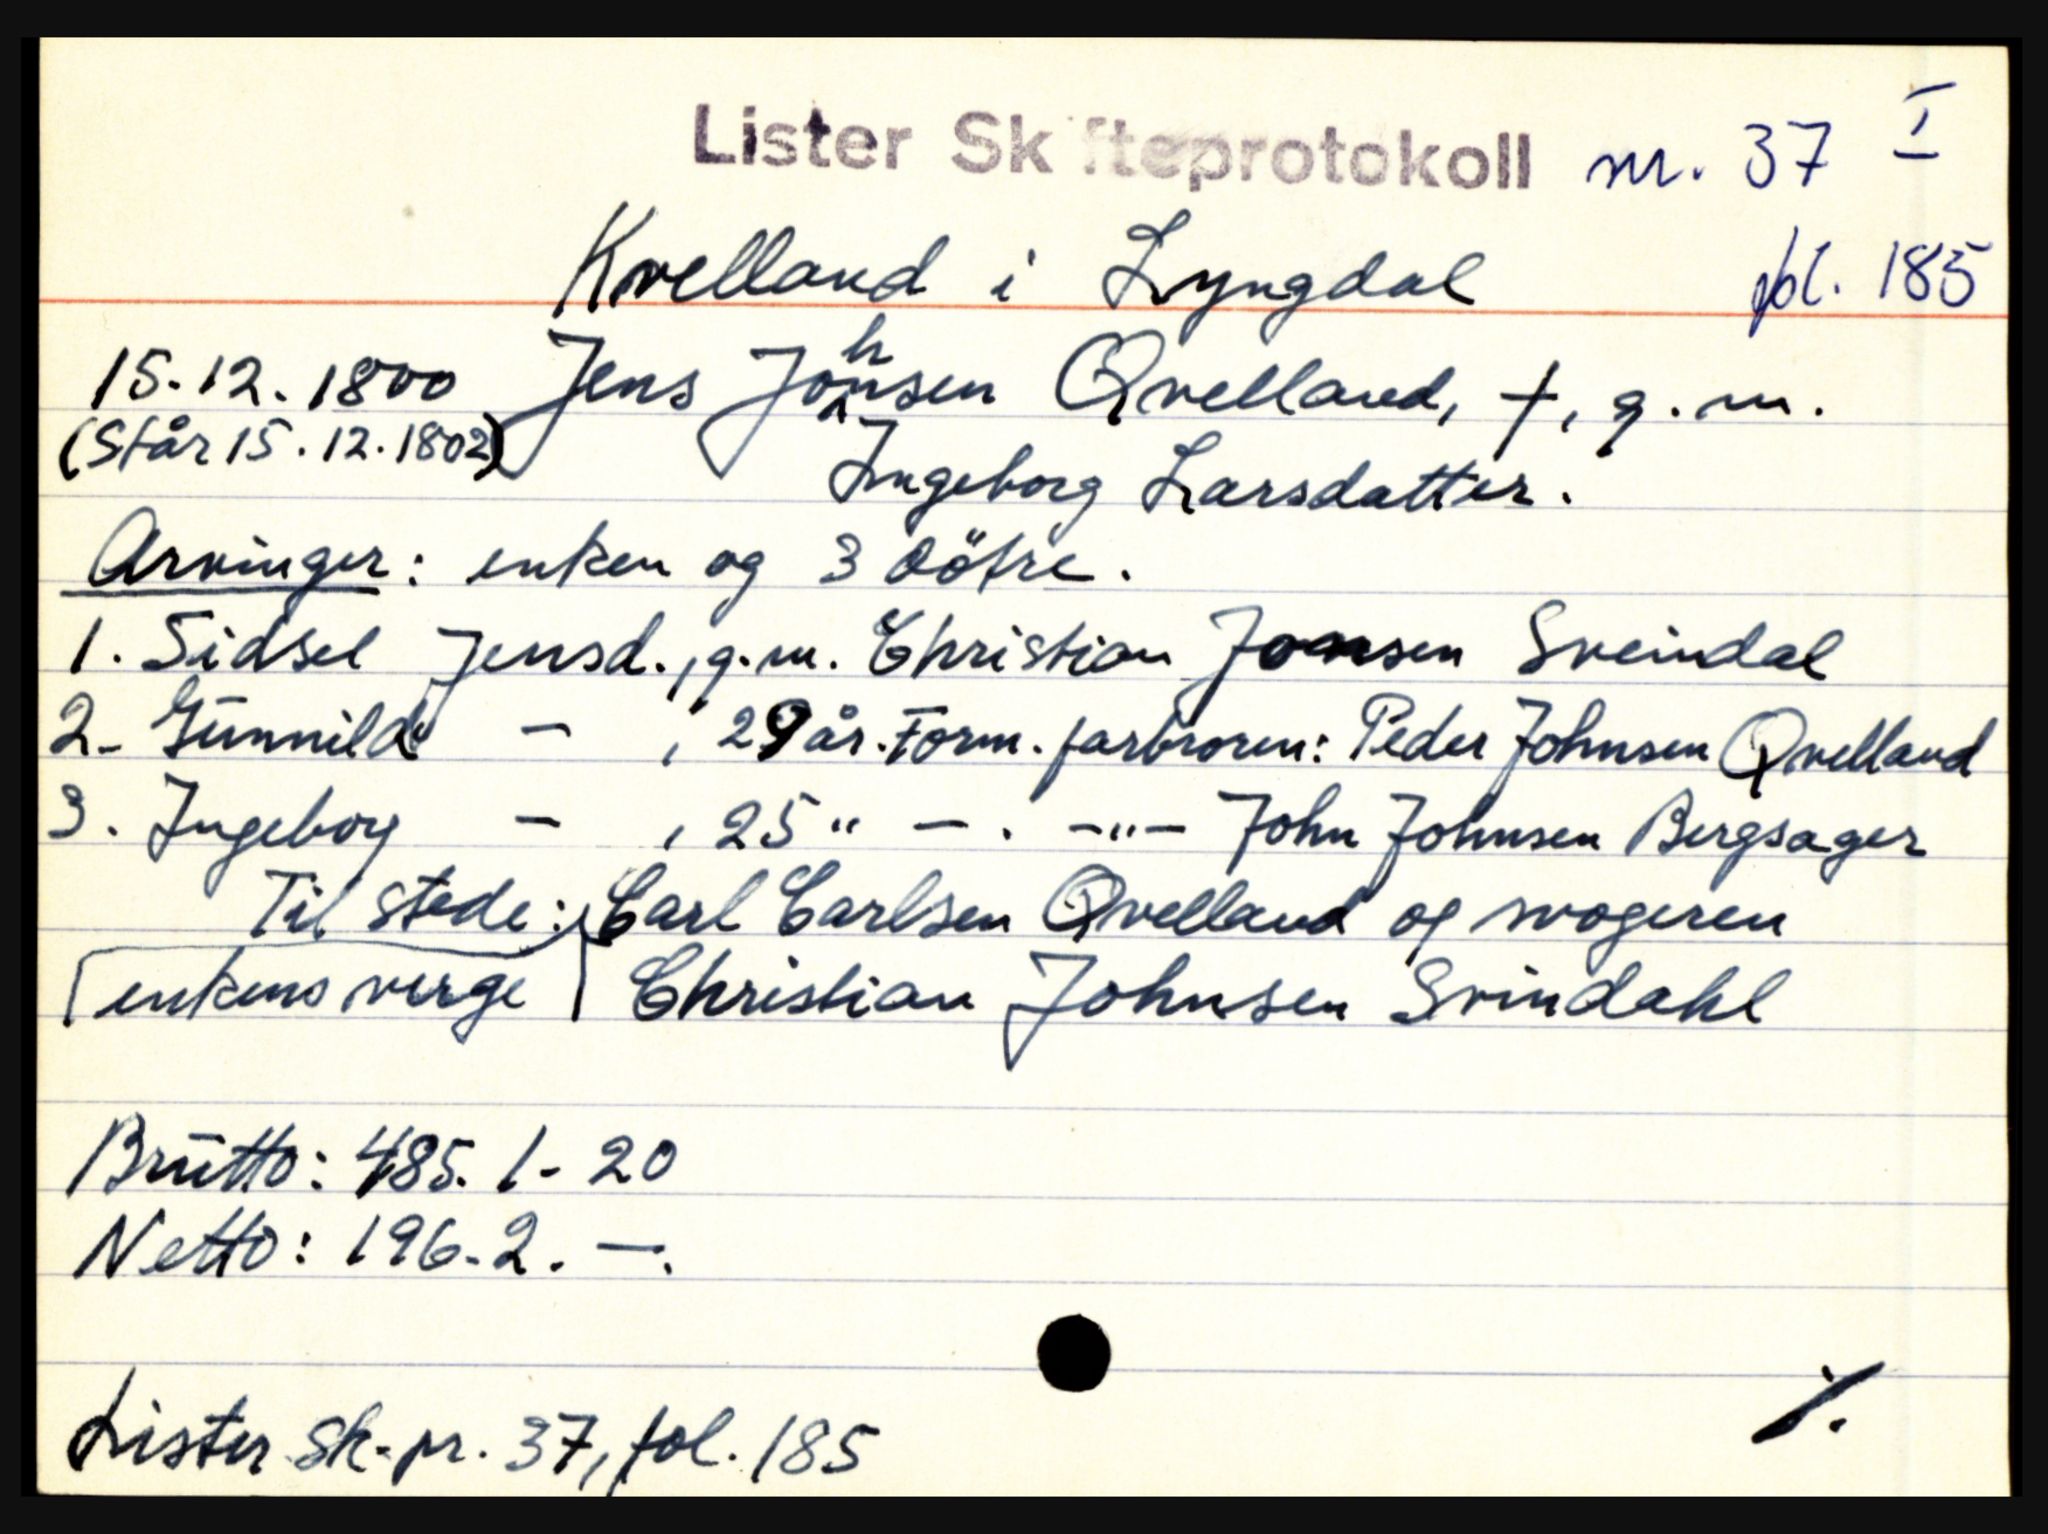 Lister Skifteprotokoll nr. 37 I
Kvelland i Lyngdal fol. 185
15.12.1800 Jens Johnsen Qvelland, †, g.m.
(Står 15.12.1802) Ingeborg Larsdatter.
Arvinger: enken og 3 døtre.
1. Sidsel Jensd., g.m. Christian Jonsen Sveindal
2. Gunnild - , 29 år. Form. farbroren: Peder Johnsen Qvelland
3. Ingeborg - , 25 " - . -"- John Johnsen Bergsager
Til stede: Carl Carlsen Qvelland og svogeren
enkens verge Christian Johnsen Svindahl
Brutto: 485. 1 - 20
Netto: 196. 2. —.
Lister sk. pr. 37, fol. 185